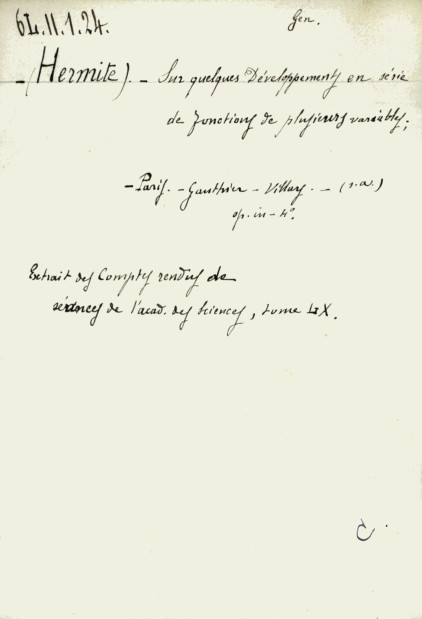 6L.11.1.24.
Gen.
- (Hermite). - Sur quelques Développements en série
de fonctions de plusieurs variables;
- Paris. - Gauthier - Villars. - (s.a.)
op. in-4°.
Extrait des Comptes rendus de
séances de l'acad. des Sciences, tome LIX.
C.